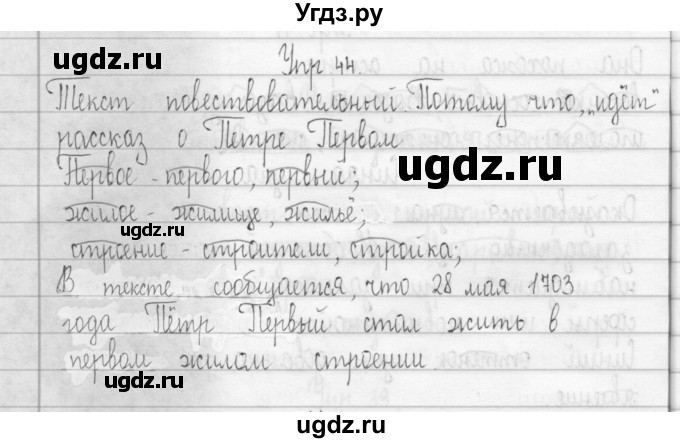 Угдз.ру
Упр 44.
Текст повествовательный Потому что, „идёт"
рассказ о Петре Первом
Первое - первого, первый;
жилое - жилище, жильё;
строение - строители, стройка;
В тексте сообщается, что 28 мая 1703
года Пётр Первый стал жить в
первом жилом строении
ugdz.ru
ugdz.ru
ugdz.ru
ugdz.ru
ugdz.ru
ugdz.ru
ugdz.ru
ugdz.ru